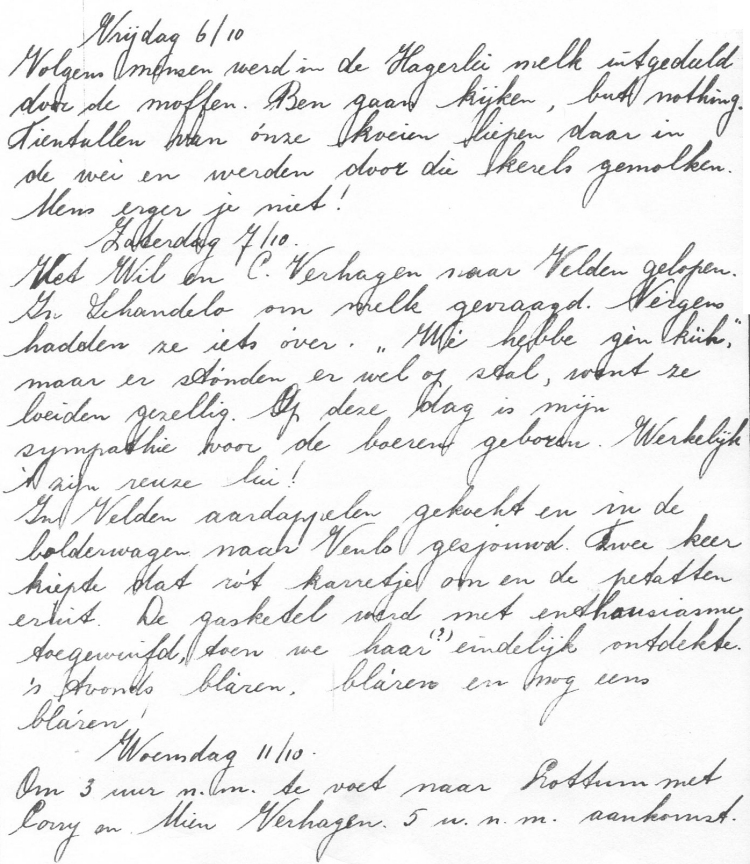 Vrijdag 6/10
Volgens mensen werd in de Hagerlei melk uitgedeeld
door de moffen. Ben gaan kijken, but nothing.
Tientallen van ónze koeien liepen daar in
de wei en werden door die kerels gemolken.
Mens erger je niet!
Zaterdag 7/10.
Met Wil en C. Verhagen naar Velden gelopen.
In Schandelo om melk gevraagd. Nergens
hadden ze iets over. „Wé hebbe gén küh",
maar er stonden er wel op stal, want ze
loeiden gezellig. Op deze dag is mijn
sympathie voor de boeren geboren. Werkelijk
't zijn reuze lui!
In Velden aardappelen gekocht en in de
bolderwagen naar Venlo gesjouwd. Twee keer
kiepte dat rót karretje om en de petatten
eruit. De gasketel werd met enthousiasme
toegewuifd, toen we haar (?) eindelijk ontdekte.
's Avonds bláren, bláren en nog eens
bláren!
Woensdag 11/10.
Om 3 uur n.m. te voet naar Lottum met
Corry en Mien Verhagen. 5 u. n. m. aankomst.